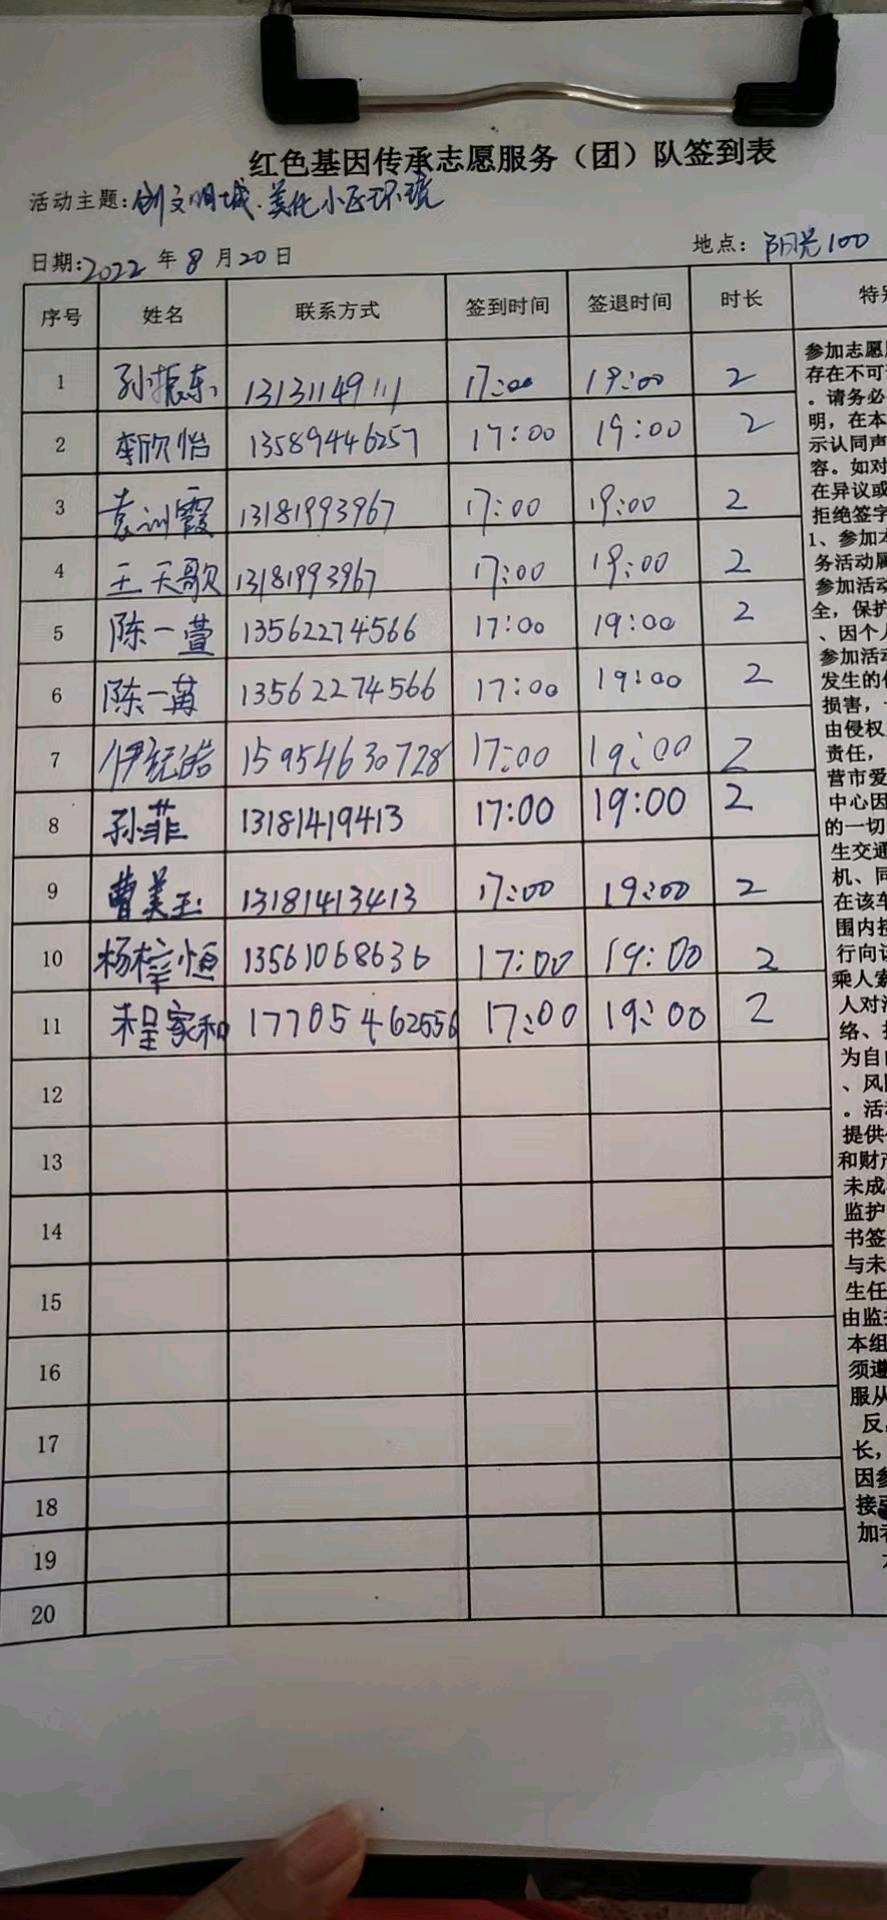 红色基因传承志愿服务（团）队签到表
活动主题：创文明城、美化小区环境
日期：2022年8月20日 地点：阳光100
序号 姓名 联系方式 签到时间 签退时间 时长 特别
1 孙振东 13131149111 17:00 19:00 2
2 李欣怡 13589446257 17:00 19:00 2
3 袁训霞 13181993967 17:00 19:00 2
4 王天歌 13181993967 17:00 19:00 2
5 陈一萱 13562274566 17:00 19:00 2
6 陈一苒 13562274566 17:00 19:00 2
7 伊 15954630728 17:00 19:00 2
8 孙菲 13181419413 17:00 19:00 2
9 曹美玉 13181413413 17:00 19:00 2
10 杨梓恒 13561068636 17:00 19:00 2
11 程家和 17705462556 17:00 19:00 2
12
13
14
15
16
17
18
19
20
参加志愿
存在不可
。请务必
明，在本
示认同声
容。如对
在异议或
拒绝签字
1、参加本
务活动属
参加活动
全，保护
、因个人
参加活动
发生的
损害，
由侵权
责任，
营市爱
中心因
的一切
生交通
机、同
在该车
围内按
行向
乘人索
人对
络、
为自
、风险
。活动
提供
和财产
未成
监护
书签
与未
生任
由监护
本组
须遵
服从
反
长，
因参
接
加者